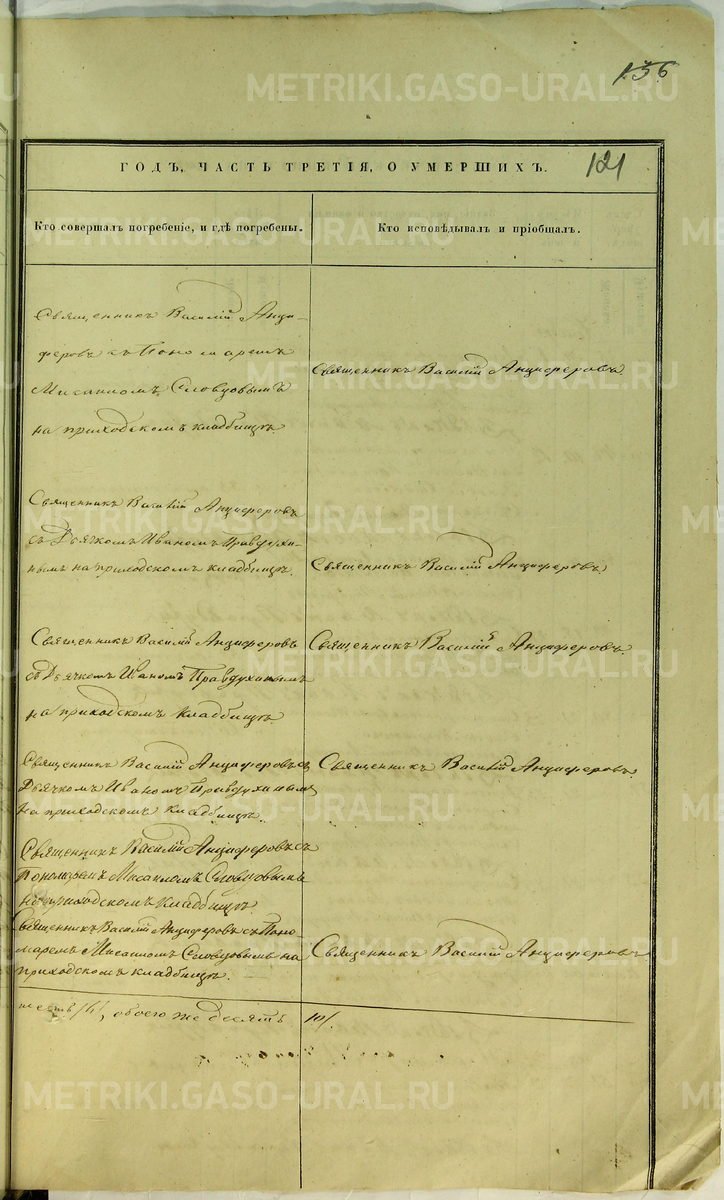 136
121
ГОДЪ, ЧАСТЬ ТРЕТІЯ, О УМЕРШИХЪ.
Кто совершалъ погребеніе, и гдѣ погребены.
Кто исповѣдывалъ и пріобщалъ.
Священникъ Василій Анци-
феровъ съ Пономаремъ
Мисаиломъ Словцовымъ
на приходскомъ кладбищѣ.
Священникъ Василій Анциферовъ
Священникъ Василій Анциферовъ
съ Дьячкомъ Иваномъ Правдухи-
нымъ на приходскомъ кладбищѣ.
Священникъ Василій Анциферовъ
Священникъ Василій Анциферовъ
съ Дьячкомъ Иваномъ Правдухинымъ
на приходскомъ кладбищѣ.
Священникъ Василій Анциферовъ.
Священникъ Василій Анциферовъ съ
Дьячкомъ Иваномъ Правдухинымъ
на приходскомъ кладбищѣ.
Священникъ Василій Анциферовъ.
Священникъ Василій Анциферовъ съ
Пономаремъ Мисаиломъ Словцовымъ
на приходскомъ кладбищѣ.
Священникъ Василій Анциферовъ съ Поно-
маремъ Мисаиломъ Словцовымъ на
приходскомъ кладбищѣ.
Священникъ Василій Анциферовъ
обоего же десять 10/.
METRIKI.GASO-URAL.RU